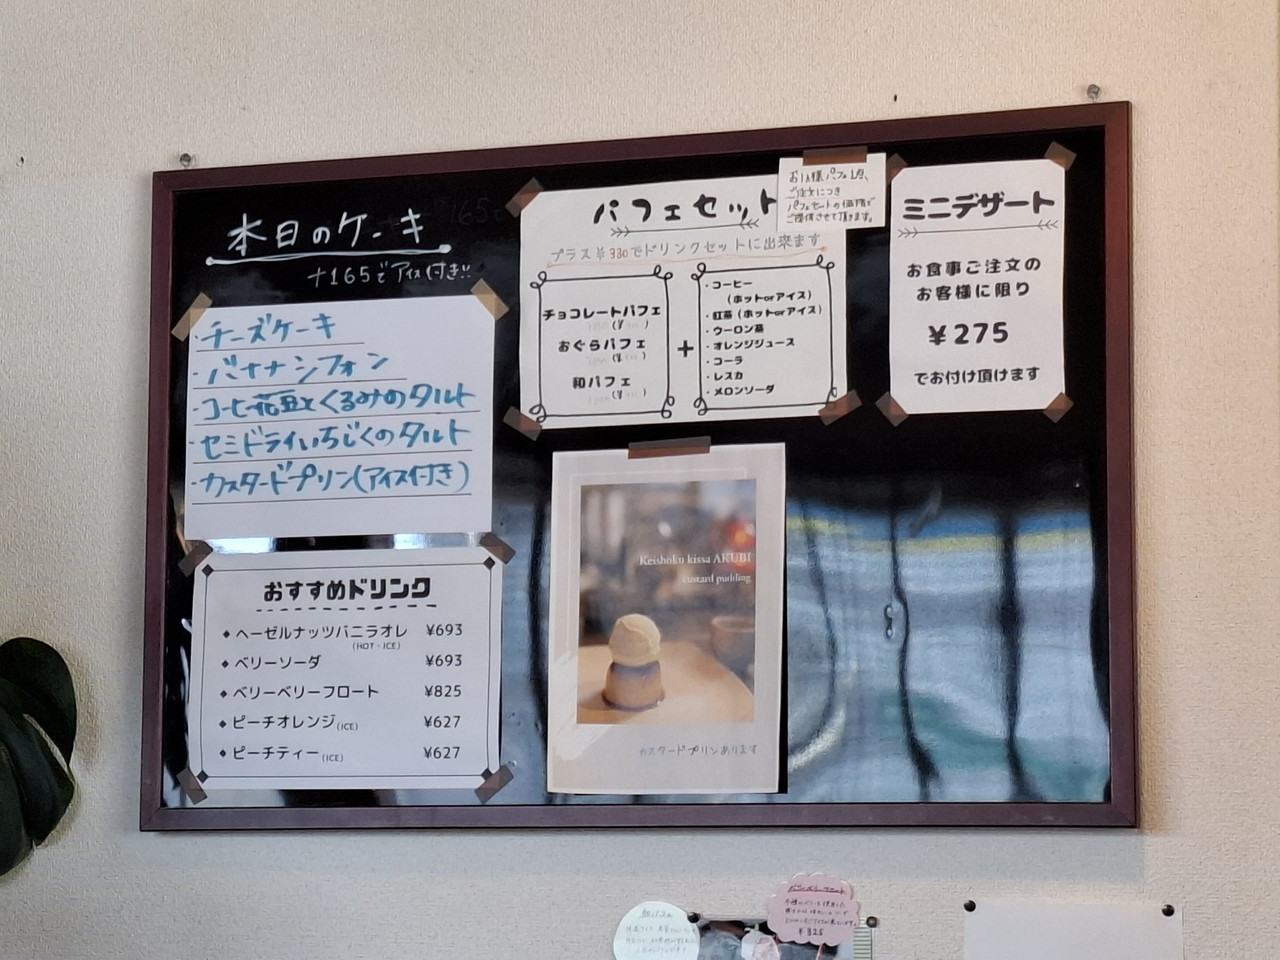 本日のケーキ
+165でアイス付き!!
・チーズケーキ
・バナナシフォン
・コーヒー花豆とくるみのタルト
・セミドライいちじくのタルト
・カスタードプリン(アイス付き)
おすすめドリンク
◆ヘーゼルナッツバニラオレ ¥693
(HOT・ICE)
◆ベリーソーダ ¥693
◆ベリーベリーフロート ¥825
◆ピーチオレンジ(ICE) ¥627
◆ピーチティー(ICE) ¥627
パフェセット
プラス¥330でドリンクセットに出来ます
チョコレートパフェ
おぐらパフェ
和パフェ
+
・コーヒー
(ホットorアイス)
・紅茶(ホットorアイス)
・ウーロン茶
・オレンジジュース
・コーラ
・レスカ
・メロンソーダ
お1人様パフェ1点、
ご注文につき
パフェセットの価格で
ご提供させて頂けます。
ミニデザート
お食事ご注文の
お客様に限り
¥275
でお付け頂けます
Keishoku kissa AKUBI
custard pudding
カスタードプリンあります
¥825